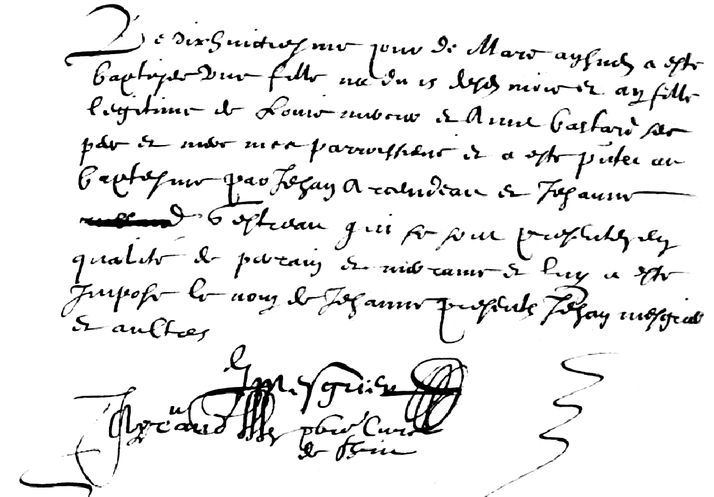 Le dixhuictiesme jour de Mars aud an a este
baptisee une fille nee du 15 desd mois et an fille
legitime de Louis et Anne bastard ses
pere et mere mes parroissiens et a este pntee au
baptesme par Jehan Arcendeau et Jehanne
Vestreau qui se sont presentez en
qualité de parain et meraine et luy a este
Imposé le nom de Jehanne presents Jehan mesgnier
et aultres
mesgnier
pbre Curé
de